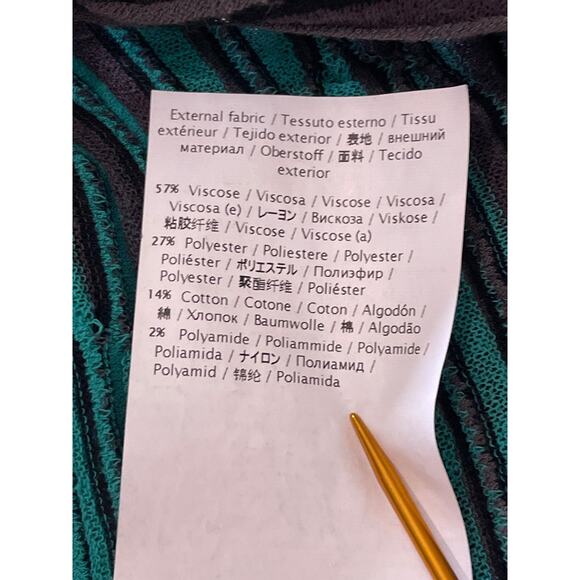 External fabric / Tessuto esterno / Tissu
extérieur / Tejido exterior / 表地 / внешний
материал / Oberstoff / 面料 / Tecido
exterior
57% Viscose / Viscosa / Viscose / Viscosa /
Viscosa (e) / レーヨン / Вискоза / Viskose /
粘胶纤维 / Viscose / Viscose (a)
27% Polyester / Poliestere / Polyester /
Poliéster / ポリエステル / Полиэфир /
Polyester / 聚酯纤维 / Poliéster
14% Cotton / Cotone / Coton / Algodón /
綿 / Хлопок / Baumwolle / 棉 / Algodão
2% Polyamide / Poliammide / Polyamide /
Poliamida / ナイロン / Полиамид /
Polyamid / 锦纶 / Poliamida